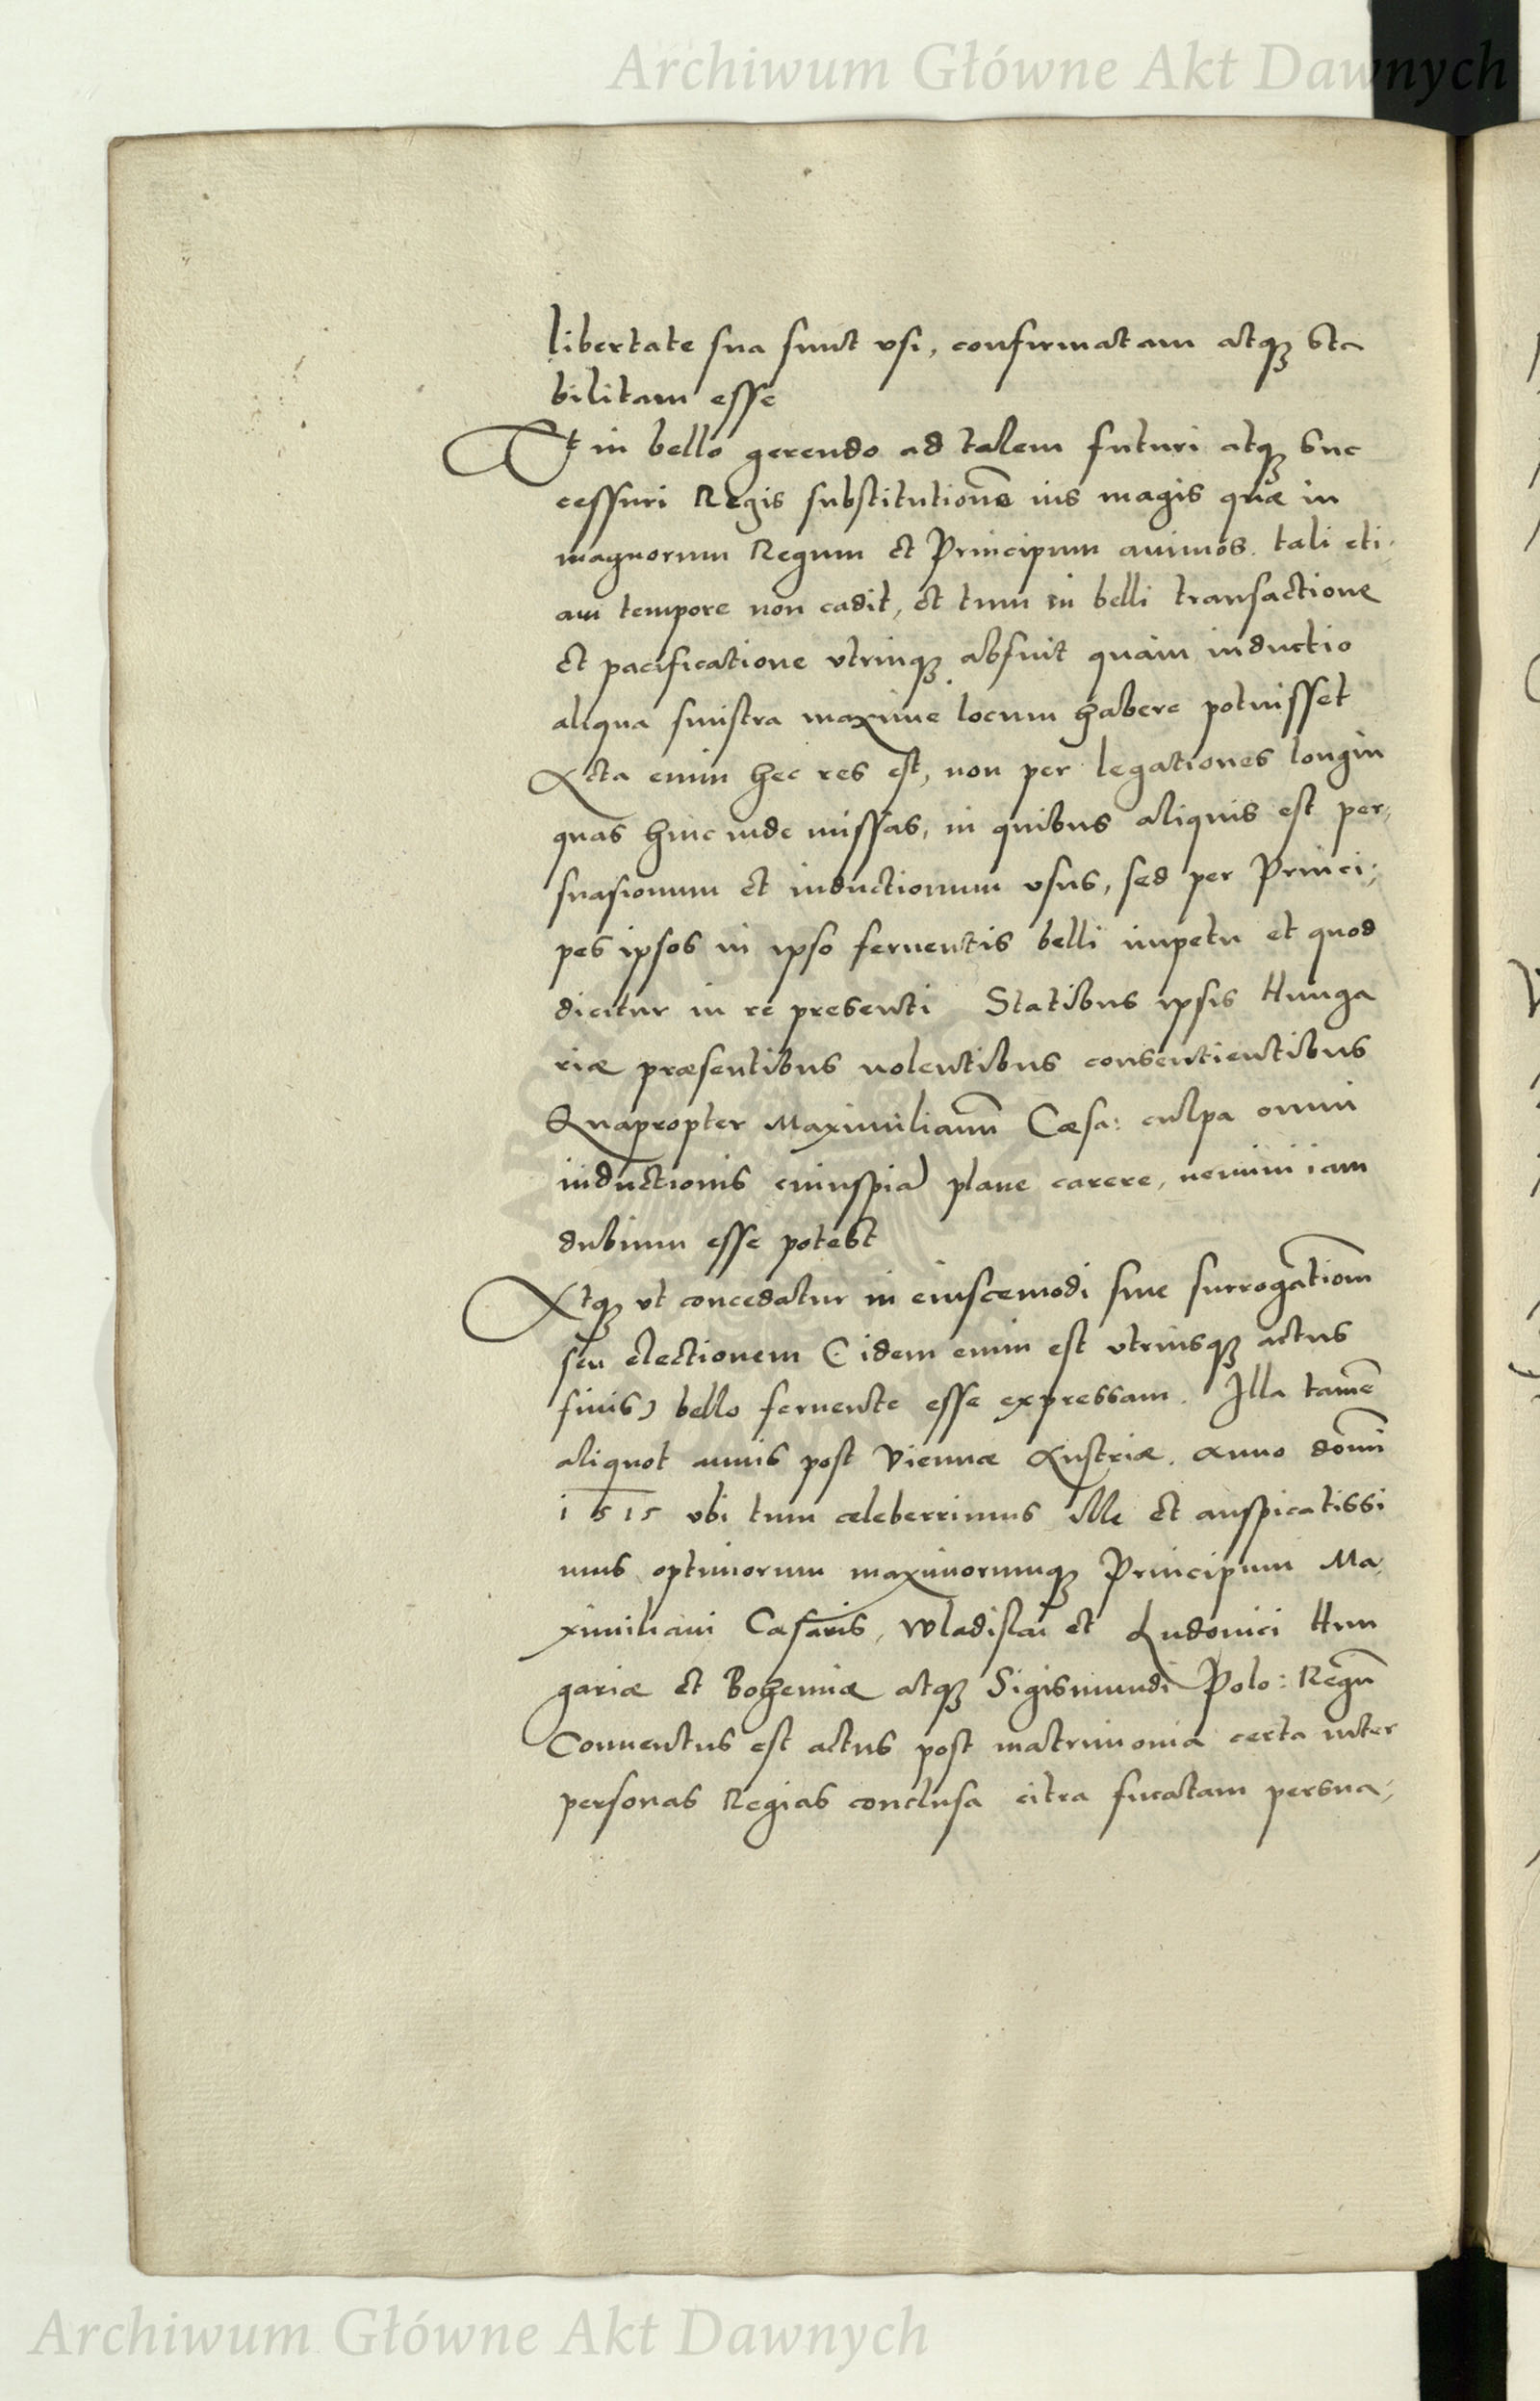 Archiwum Główne Akt Dawnych
libertate sua sunt vsi, confirmatam atq3 sta
bilitam esse
Et in bello gerendo ad talem futuri atq3 suc
cessuri Regis substitutionē ius magis quā in
magnorum Regum et Principum animos. tali eti-
am tempore non cadit, et tum in belli transactione
et pacificatione vtrinq3 absuit quàm inductio
aliqua sinistra maxime locum habere potuisset
Acta enim hec res est, non per legationes longin
quas hinc inde missas, in quibus aliquis est per-
suasionum et inductionum vsus, sed per Princi-
pes ipsos in ipso feruentis belli impetu et quod
dicitur in re presenti Statibus ipsis Hunga
riæ præsentibus uolentibus consentientibus
Quapropter Maximilianū Cæsa: culpa omni
inductionis cuiuspiā plane carere, nemini iam
dubium esse potest
Atq3 vt concedatur in eiuscemodi siue surrogationē
seu electionem (idem enim est vtriusq3 actus
finis) bello feruente esse expressam. Illa tamē
aliquot annis post Viennæ Austriæ. anno domī
1515 vbi tum celeberrimus ille et auspicatissi
mus optimorum maximorumq3 Principum Ma-
ximiliani Cæsaris, Wladislai et Ludouici Hun
gariæ et Bohemiæ atq3 Sigismundi Polo: Regū
Conuentus est actus post matrimonia certa inter
personas Regias conclusa citra fucatam persua-
Archiwum Główne Akt Dawnych